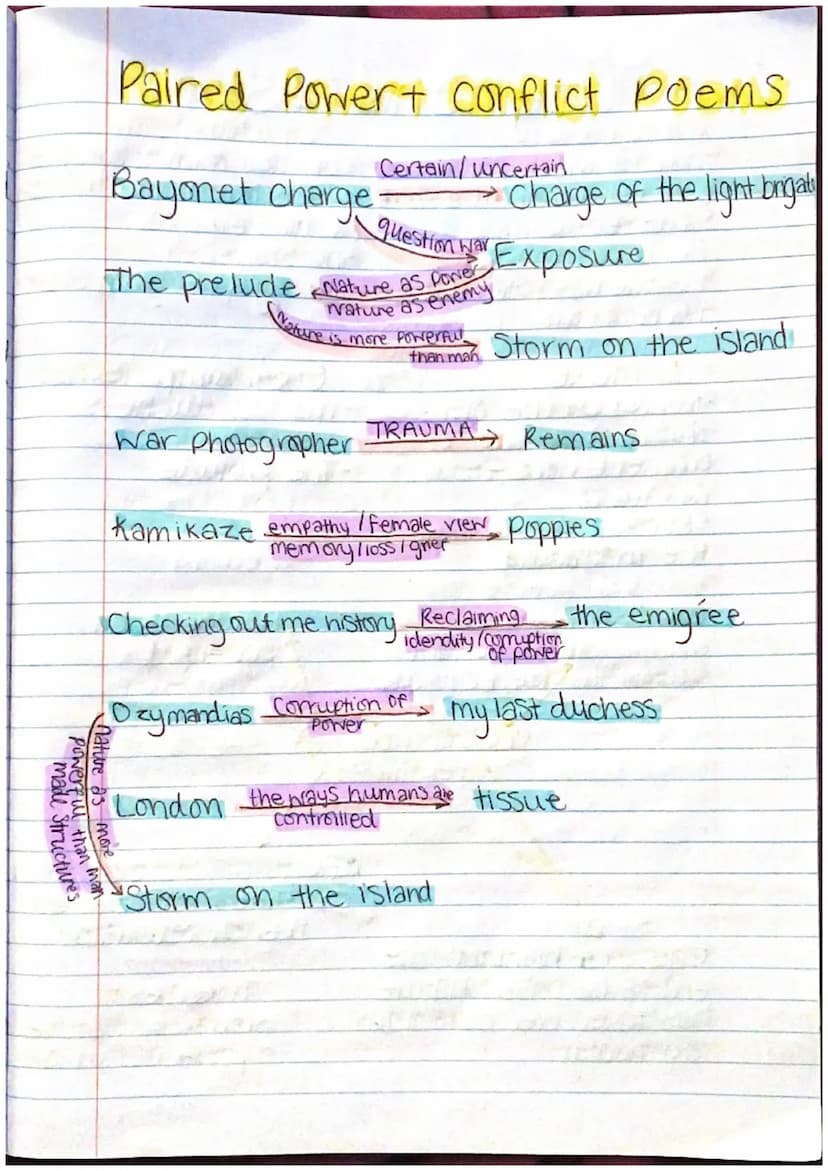 Paired Power + Conflict Poems
Certain/uncertain
Bayonet Charge → Charge of the light brigade
question war
Exposure
The prelude
Nature as power
Nature as enemy
Nature is more powerful
than man
Storm on the island
War photographer TRAUMA → Remains
Kamikaze empathy/female view → Poppies
memory/loss/grief
Checking out me history Reclaiming → the emigrée
idendity/corruption
of power
Ozymandias Corruption of → my last duchess
power
nature as more
powerful than man
made structures
London the ways humans are → tissue
controlled
Storm on the island